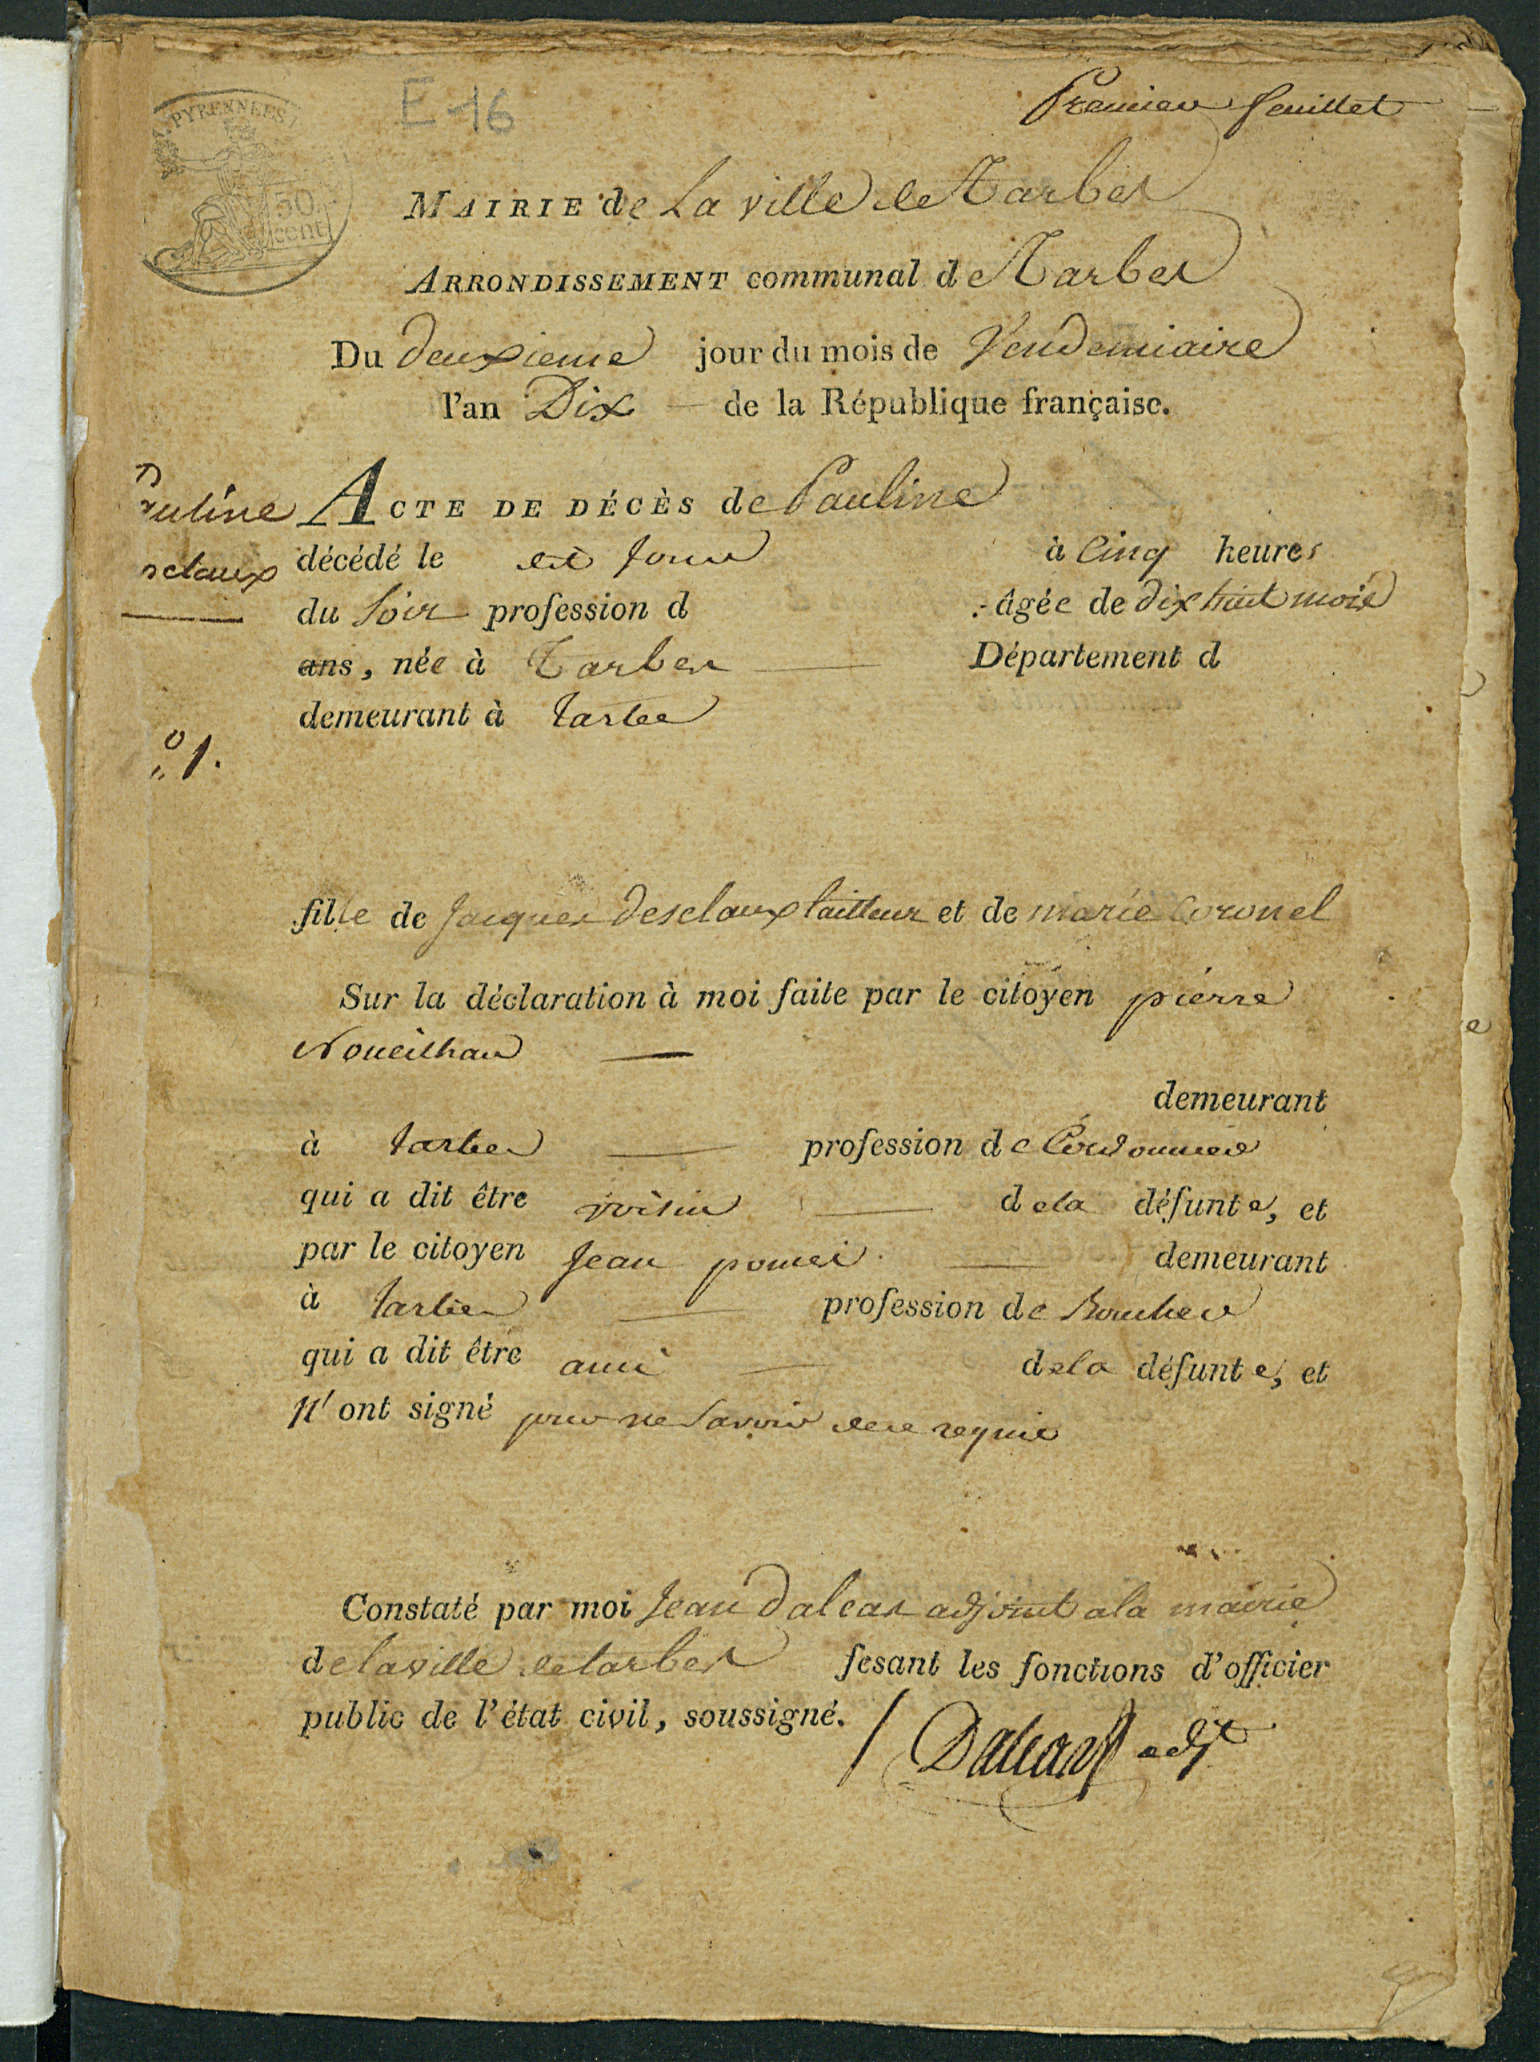 E-16
Premier feuillet
PYRENNEES
50
cent
MAIRIE de La ville de Tarbes
ARRONDISSEMENT communal de Tarbes
Du deuxieme jour du mois de Vendemiaire
l'an Dix de la République française.
auline
sclaux
ACTE DE DÉCÈS de Pauline
décédé le dit jour à Cinq heures
du Soir profession d âgée de dix huit mois
ans, née à Tarbes Département d
demeurant à Tarbes
° 1.
fille de Jacques Desclaux tailleur et de marie Coronel
Sur la déclaration à moi faite par le citoyen pierre
Noueilhan
demeurant
à tarbes profession de Cordonnier
qui a dit être voisin dela défunte, et
par le citoyen Jean pomei demeurant
à tarbes profession de
qui a dit être ami dela défunte, et
n'ont signé pour ne Savoir de ce requis
Constaté par moi Jean Daleas adjoint a la mairie
de la ville de tarbes fesant les fonctions d'officier
public de l'état civil, soussigné.
Daleas adjt